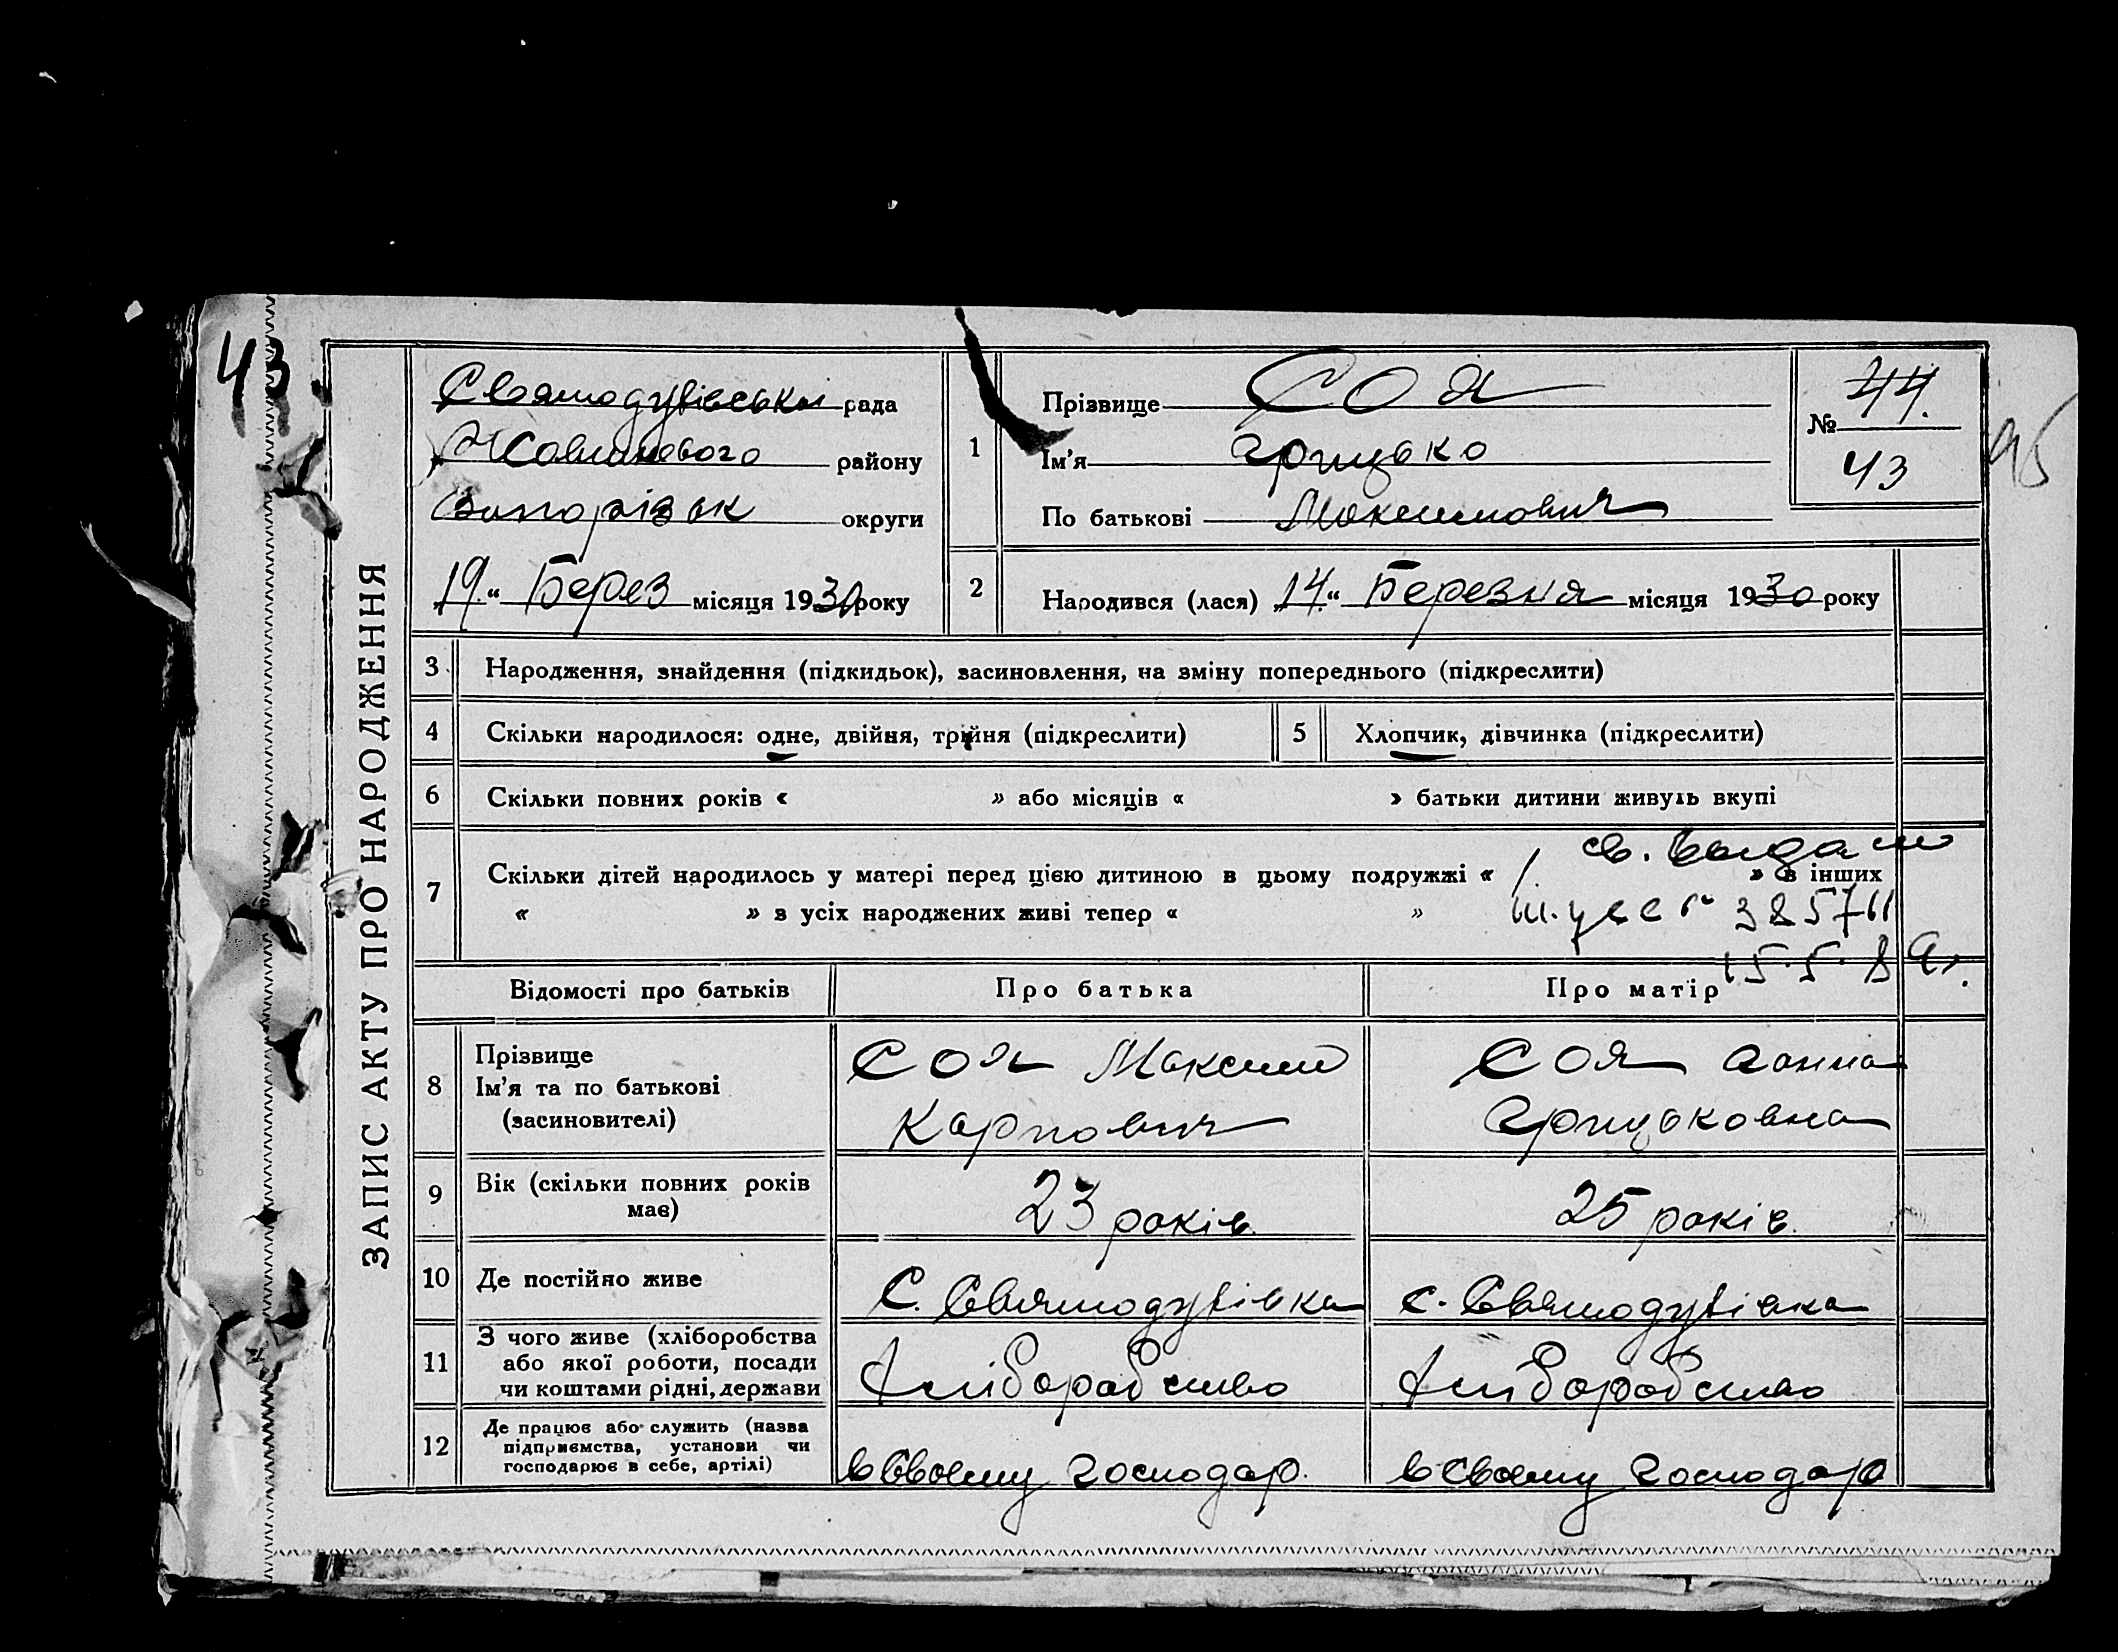 43
ЗАПИС АКТУ ПРО НАРОДЖЕННЯ
Святодухівська рада
Жовтневого району
Запорізьк округи
„19“ Берез місяця 1930 року
1
Прізвище СОЯ
Ім'я Грицько
По батькові Максимович
№ 44.
43
95
2
Народився (лася) „14“ Березня місяця 1930 року
3 Народження, знайдення (підкидьок), засиновлення, на зміну попереднього (підкреслити)
4 Скільки народилося: одне, двійня, трійня (підкреслити)
5 Хлопчик, дівчинка (підкреслити)
6 Скільки повних років « » або місяців « » батьки дитини живуть вкупі
св. выдано
7 Скільки дітей народилось у матері перед цією дитиною в цьому подружжі « » в інших
« » з усіх народжених живі тепер « »
385711
15.5.89г.
Відомості про батьків
Про батька
Про матір
8
Прізвище
Ім'я та по батькові
(засиновителі)
СОЯ Максим
Карпович
СОЯ Ганна
Грицьковна
9
Вік (скільки повних років
має)
23 років
25 років
10 Де постійно живе
С. Святодухівка
с. Святодухівка
11
З чого живе (хліборобства
або якої роботи, посади
чи коштами рідні, держави
Хліборобство
Хліборобство
12
Де працює або служить (назва
підприємства, установи чи
господарює в себе, артілі)
в своему господар.
в своему господар